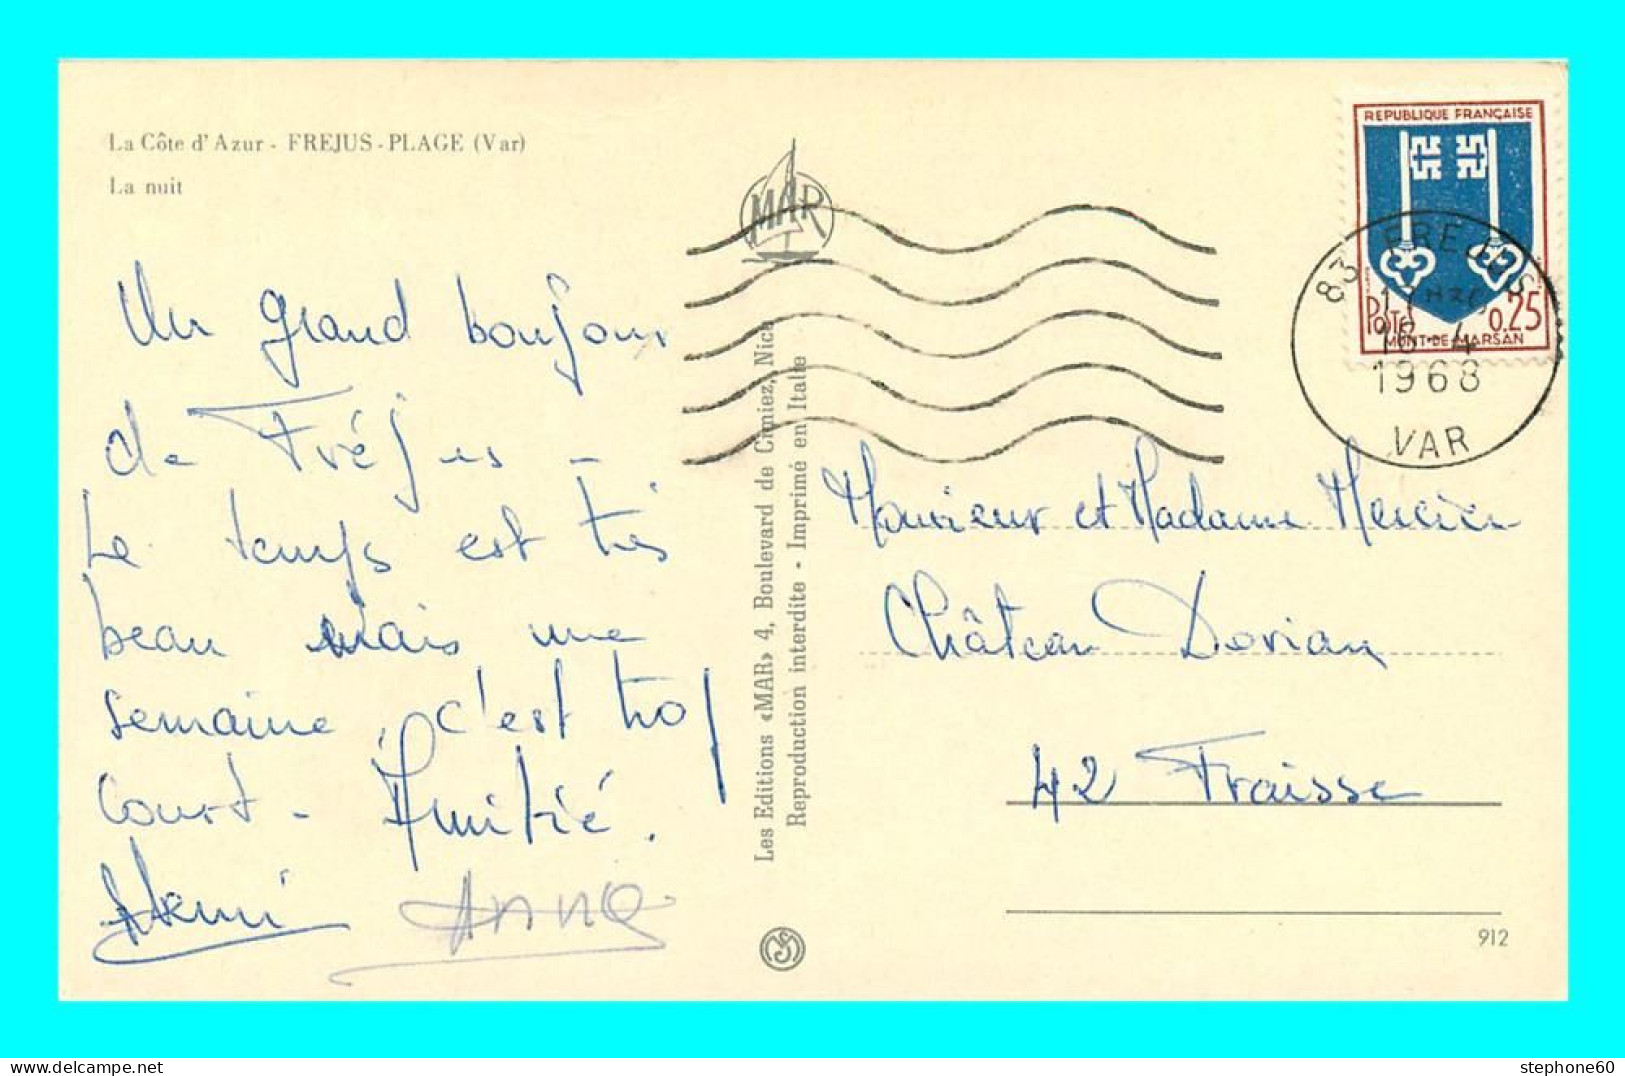 La Côte d'Azur - FREJUS-PLAGE (Var)
La nuit
Un grand bonjour
de Fréjus -
Le temps est très
beau mais une
semaine, c'est trop
court - Amitié.
Henri Anne
MAR
Les Editions «MAR» 4, Boulevard de Cimiez, Nice
Reproduction interdite - Imprimé en Italie
REPUBLIQUE FRANÇAISE
POSTES 0.25
MONT-DE-MARSAN
83 FREJUS
1968
VAR
Monsieur et Madame Mercier
Château Dorian
42 Fraisse
912
www.delcampe.net
stephone60